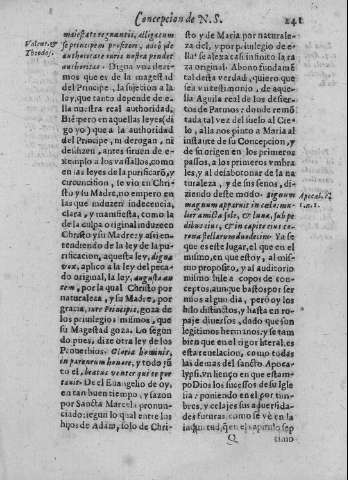 Concepcion de N.S. 241
Valent. &
Theodos.
maiestate regnantis, alligatum
se principem profiteri, adeò de
authoritate iuris nostra pendet
authoritas. Digna voz
mos que es de la magestad
del Principe, la sujecion a la
ley, que tanto depende de e-
lla nuestra real authoridad.
Biē pero en aquellas leyes (di
go yo) que a la authoridad
del Principe, ni derogan, ni
deshazen, antes siruen de e-
xemplo a los vassallos, como
en las leyes de la purificaciō, y
circuncision, se vio en Chri-
sto y su Madre, no empero en
las que induzen indecencia,
clara, y manifiesta, como la
de la culpa original induzeco
Christo y su Madre: y assi en-
tendiendo de la ley de la pu-
rificacion, aquesta ley, digna
vox, aplico a la ley del peca-
do original, la ley, augusta au
tem, por la qual Christo por
naturaleza, y su Madre, por
gracia, iure Principis, goza de
los priuilegios mismos, que
su Magestad goza. Lo segun
do pues, dize otra ley de los
Prouerbios. Gloria hominis,
in parentum honore, y todo ju
sto el, beatus venter qui te por
tauit. De el Euangelio de oy,
en tan buen tiempo, y sazon
por Sancta Marcela pronun-
ciado: segun lo qual entre los
hijos de Adam, solo de Chri-
sto y de Maria por naturale-
za del, y por priuilegio de e-
lla se alexa casi infinito la ra
za original. Abono fundamē
tal desta verdad, quiero que
sea vn testimonio, de aque-
lla Aguila real de los desier-
tos de Patmos: donde remō
tada tal vez del suelo al Cie-
lo, alla nos pinto a Maria al
instante de su Concepcion, y
de su origen en los primeros
passos, a los primeros vmbra
les, y al desabotonar de la na
turaleza, y de sus senos, di-
ziendo deste modo. signum
magnum apparuit in cœlo: mu-
lier amicta sole, & luna sub pe
dibus eius, & in capite eius co-
rona stellarum duodecim. Ya se
Apocal. 12
n. 1.
que es este lugar, el que en el
mismo, en que estoy, al mis-
mo proposito, y al auditorio
mismo hile a copos de con-
ceptos, aunque bastos por ser
mios algun dia, pero oy los
hilo distinctos, y hasta en ro-
paje diuersos, dado que son
legitimos hermanos, y se tam
bien que en el rigor literal, es
esta reuelacion, como todas
las demas del sancto Apoca-
lypsi. Vn lienço en que estam-
po Dios los sucessos de su Igle
sia: poniendo en el por tim-
bres, y celajes sus
futuras. como se ve en la
en el capitulo sep
Q timo